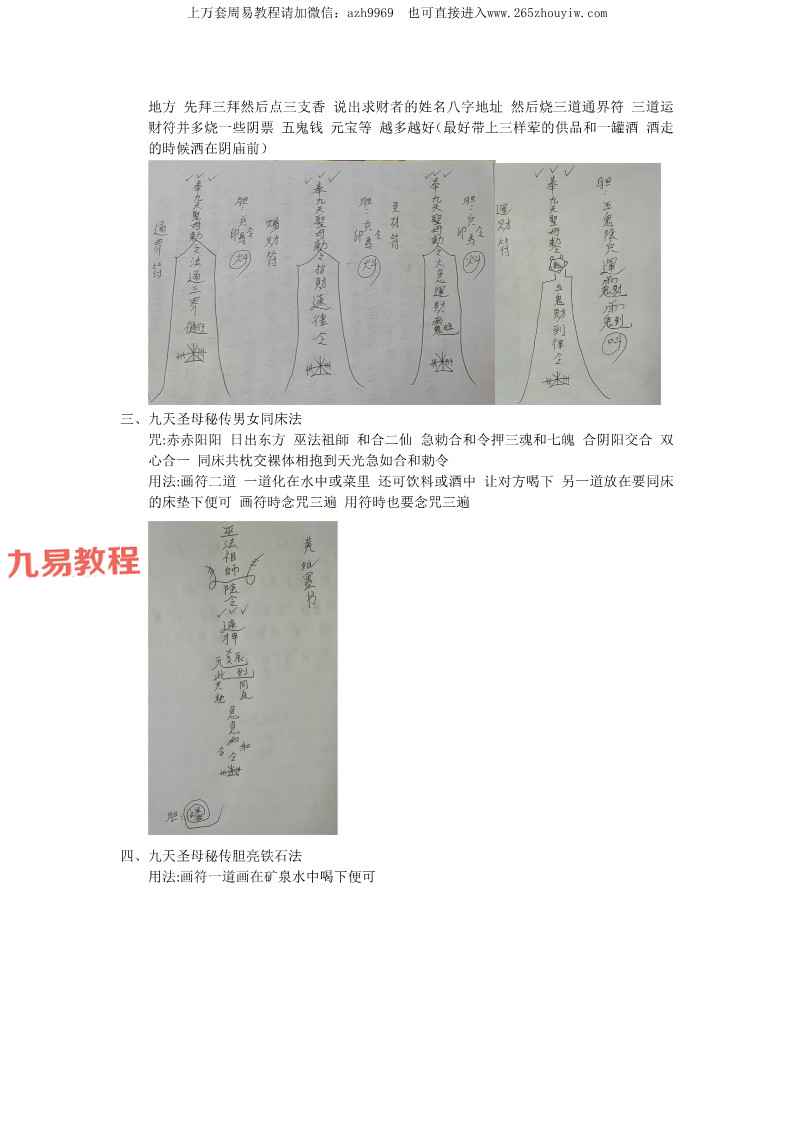 上万套周易教程请加微信：azh9969 也可直接进入www.265zhouyiw.com
地方 先拜三拜然后点三支香 说出求财者的姓名八字地址 然后烧三道通界符 三道运
财符并多烧一些阴票 五鬼钱 元宝等 越多越好(最好带上三样荤的供品和一罐酒 酒走
的時候洒在阴庙前)
通界符
奉九天聖母勅令法通三界
胆：
奉九天聖母勅令招財速律令
胆：
奉九天聖母勅令火急運財
胆：
運财符
奉九天聖母勅令
五鬼財到律令
胆：五鬼陰兵運
三、九天圣母秘传男女同床法
咒:赤赤阳阳 日出东方 巫法祖師 和合二仙 急勅合和令押三魂和七魄 合阴阳交合 双
心合一 同床共枕交裸体相抱到天光急如合和勅令
用法:画符二道 一道化在水中或菜里 还可饮料或酒中 让对方喝下 另一道放在要同床
的床垫下便可 画符時念咒三遍 用符時也要念咒三遍
九易教程
巫法祖師
陰令
速押
急急如
令
黄纸墨书
胆：
四、九天圣母秘传胆亮铁石法
用法:画符一道画在矿泉水中喝下便可